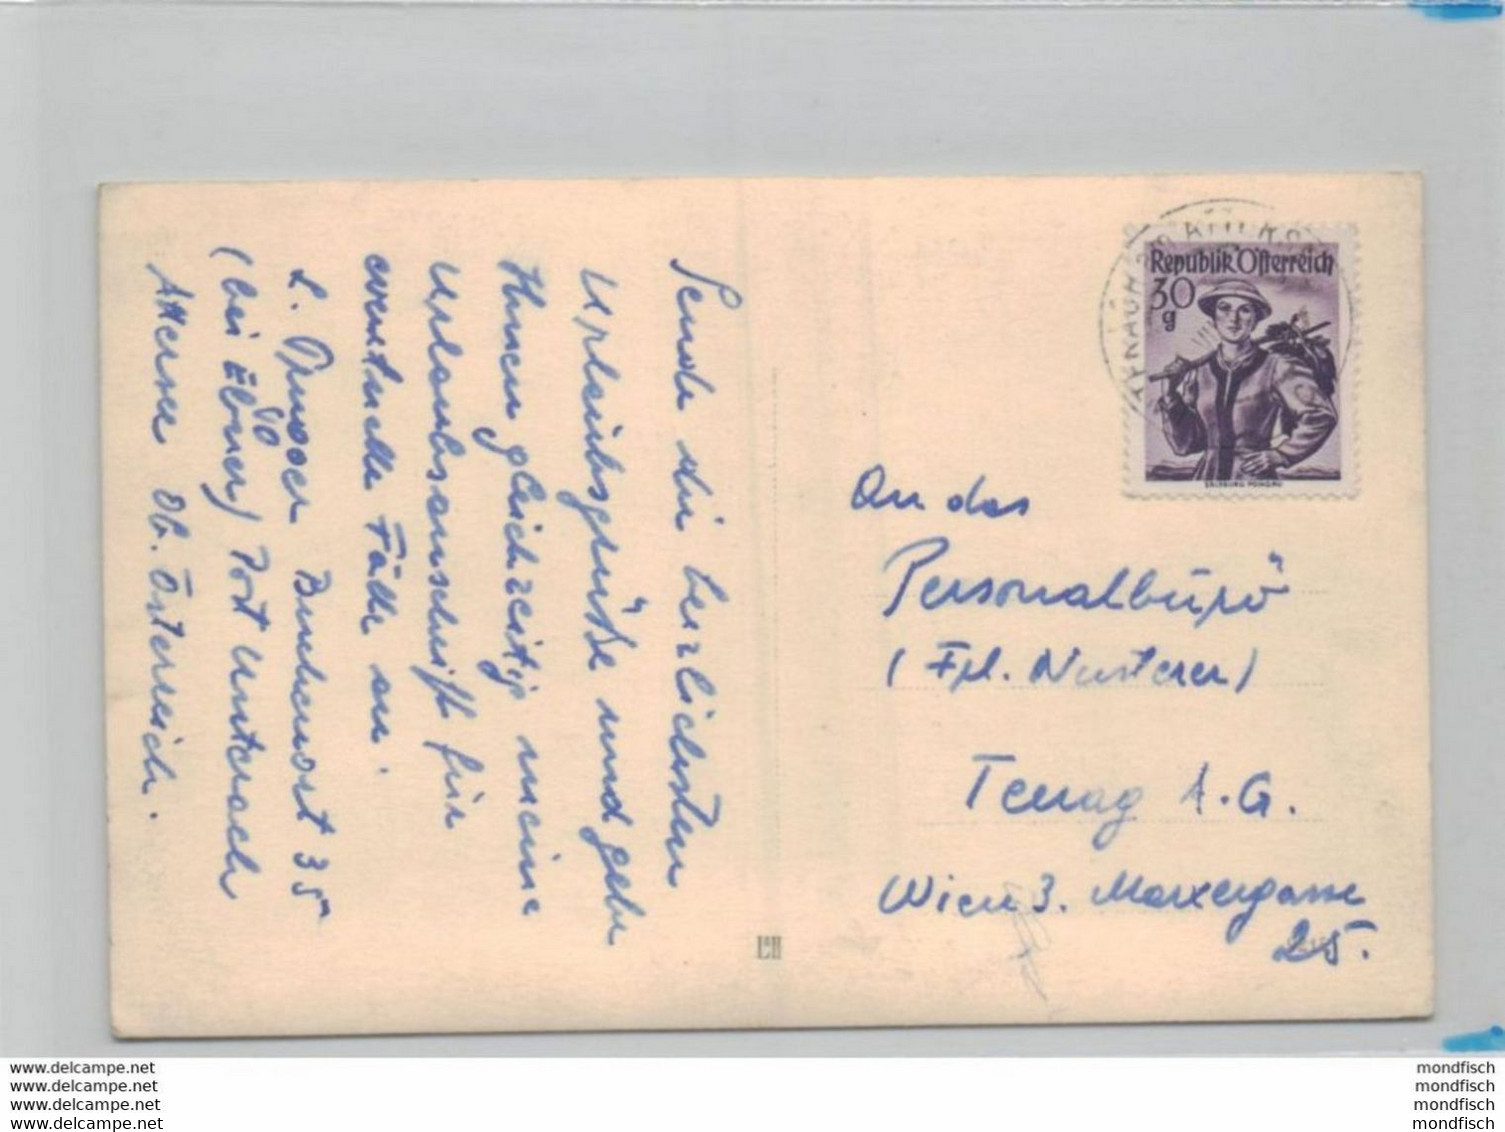 Sende die herzlichsten
Urlaubsgrüße und gebe
Ihnen gleichzeitig meine
Urlaubsanschrift für
eventuelle Fälle an.
L. Buchenort 35
(bei Ebner) Post Unterach
Attersee Ob. Österreich.
Republik Österreich
30
g
SALZBURG PONGAU
An das
Personalbüro
(Frl. Nusterer)
Terrag A.G.
Wien 3. Marxergasse
25.
www.delcampe.net
www.delcampe.net
www.delcampe.net
www.delcampe.net
mondfisch
mondfisch
mondfisch
mondfisch